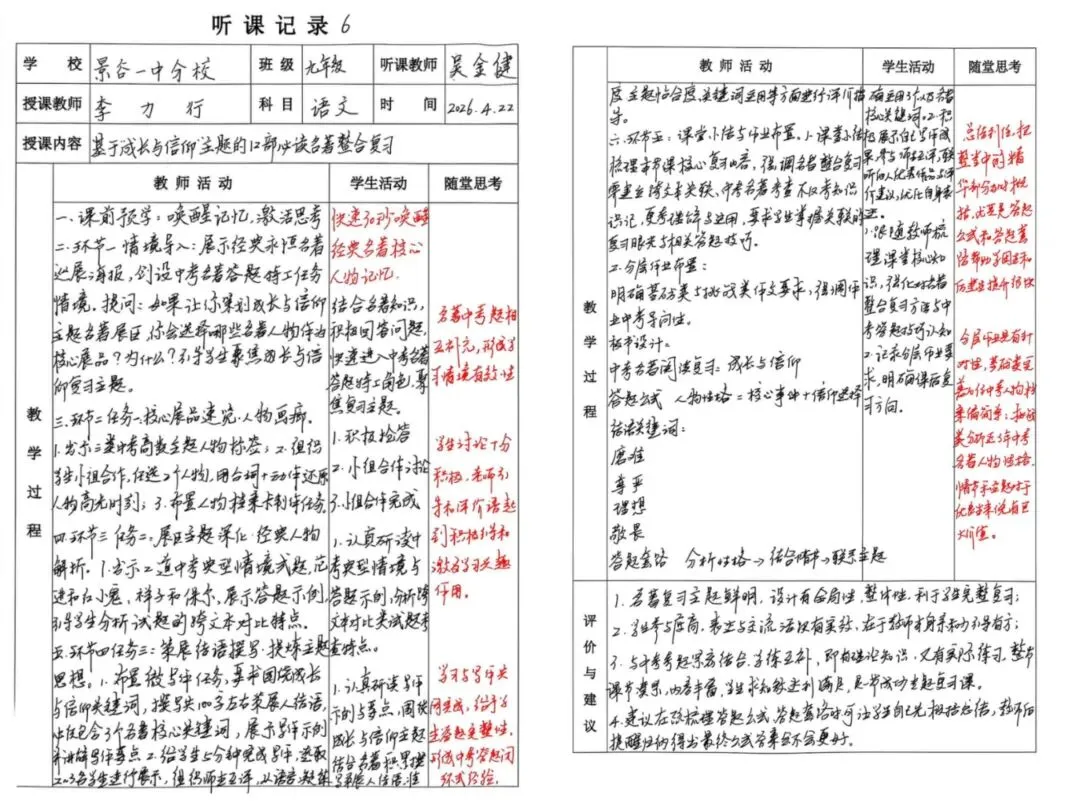 听课记录 6
学校 景谷一中分校 班级 九年级 听课教师 吴金健
授课教师 李力行 科目 语文 时间 2026.4.22
授课内容 基于成长与信仰主题的12部必读名著整合复习
教师活动 学生活动 随堂思考
教学过程
一、课前预学：唤醒记忆，激活思考
二、环节一 情境导入：展示经典永恒名著
巡展海报，创设中考名著答题特工任务
情境。提问：如果让你策划成长与信仰
主题名著展区，你会选择哪些名著人物作为
核心展品？为什么？引导学生聚焦成长与信
仰复习主题。
三、环节二任务一：核心展品速览：人物画廊。
1.出示三类中考高频主题人物标签；2.组织
学生小组合作，任选2个人物，用台词+动作还原
人物高光时刻；3.布置人物档案卡制作任务
四、环节三 任务二：展区主题深化：经典人物
解析。1.出示2道中考典型情境式题，范
进和孔小宽、样子和保尔，展示答题示例，
引导学生分析试题的跨文本对比特点。
五、环节四任务三：策展结语撰写，提炼主题
思想。1.布置微写作任务，要求围绕成长
与信仰关键词，撰写100字左右策展人结语，
必须包含3个名著核心关键词，展示写作示例
并讲解写作要点。2.给学生5分钟完成写作，选取
2-3名学生进行展示，组织师生互评，从语言、题
快速30秒唤醒
经典名著核心
人物记忆。
结合名著知识，
积极回答问题，
快速进入中考名著
答题特工角色，聚
焦复习主题。
1.积极抢答
2.小组合作讨论
3.小组合作完成
1.认真研读中
考典型情境与
答题示例，分析跨
文本对比类试题考
查特点。
1.认真研读写作
示例与要点，围绕
成长与信仰主题
结合名著积累撰
写策展人结语，准
名著中考题相
互补充，形成学
习情境有效性
学生讨论十分
积极，老师引
导和评价语起
到积极引导和
激发学习兴趣
作用。
学习与写作共
同完成，给予学
生答题完整性，
形成中考答题闭
环式经验。
教师活动 学生活动 随堂思考
教学过程
度、主题恰合度、关键词运用等方面进行评价指
导。
六、环节五：课堂小结与作业布置。1.课堂小结
梳理本节课核心复习内容，强调名著整合复习
需建立跨文本关联，中考名著考查不仅考知识
识记，更考理解与运用，要求学生掌握关联的
复习眼光与相关答题技巧。
2.分层作业布置：
明确基础类与挑战类作文要求，强调作
业中考导向性。
板书设计：
中考名著阅读复习：成长与信仰
答题公式 人物性格=核心事件+信仰选择
结语关键词：
磨难
尊严
理想
敬畏
答题套路 分析性格→结合情节→联系主题
确运用3个以及名著
核心关键词。2.积
极展示自己写作成
果，参与师生互评，聆
听他人优秀作品与写
作建议，优化自身表
达。
1.跟随教师梳
理课堂核心知
识，强化对名著
整合复习方法与中
考答题技巧认知
2.记录分层作业要
求，明确课后复
习方向。
总结到位，把
整堂中的精
华部分加以概
括，尤其是答题
公式和答题套
路帮助学困生和
历史生提升很快
分层作业具有针
对性，基础类是
基础在中考人物档
案填简单；挑战
类分析近年中考
名著人物性格、
情节和主题对于
优生来说有巨
大价值。
评价与建议
1.名著复习主题鲜明，设计有全局性，整体性，利于学生完整复习；
2.学生参与度高，表达与交流活跃有实效，在于教师本身亲和力引导有方；
3.与中考考题紧密结合，学练互补，即有理论知识，又有实际练习，整节
课节奏紧，内容丰富，学生求知欲达到满足，是节成功主题复习课。
4.建议在改梳理答题公式、答题套路时可让学生自己先概括总结，教师后
提醒归纳得出最终公式答案会不会更好。